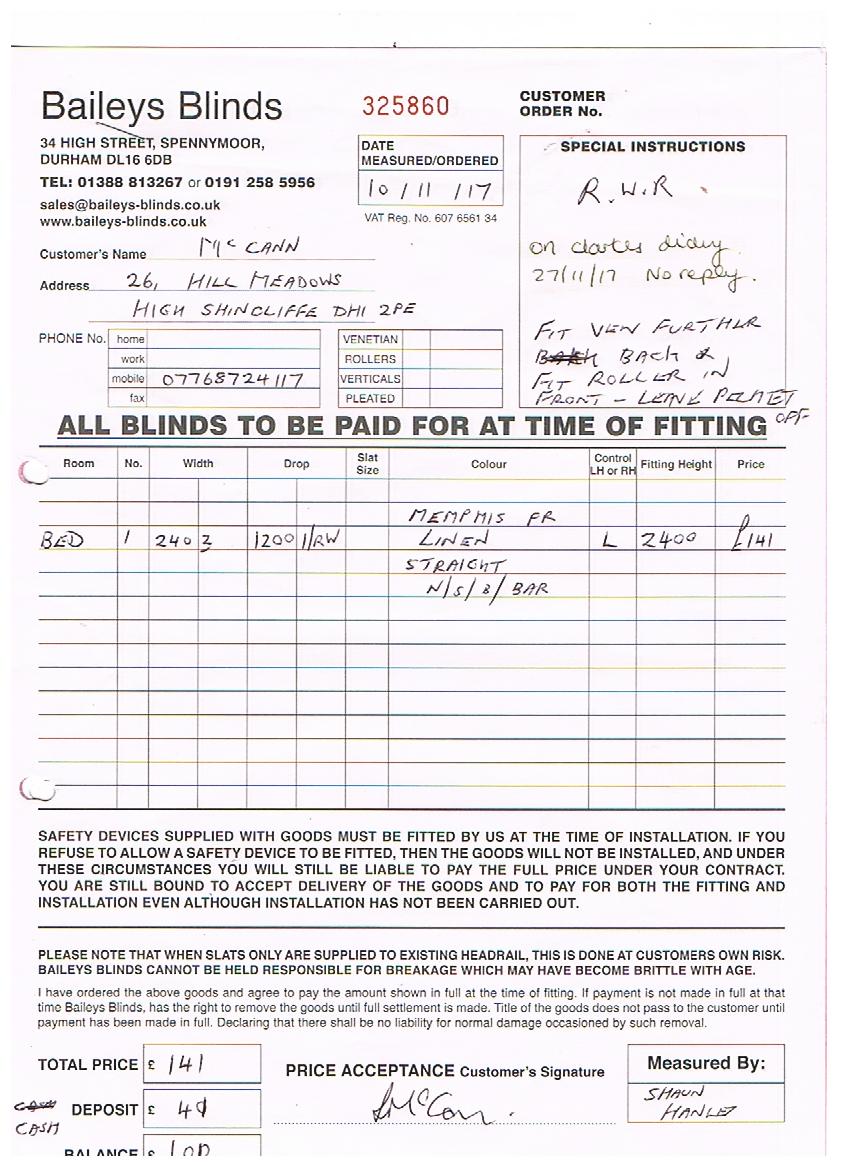 Baileys Blinds
325860
CUSTOMER
ORDER No.
34 HIGH STREET, SPENNYMOOR,
DURHAM DL16 6DB
TEL: 01388 813267 or 0191 258 5956
sales@baileys-blinds.co.uk
www.baileys-blinds.co.uk
DATE
MEASURED/ORDERED
10/11/17
VAT Reg. No. 607 6561 34
SPECIAL INSTRUCTIONS
R.W.R
on
27/11/17 No reply.
FIT VEN FURTHER
BACK &
FIT ROLLER IN
FRONT - LEAVE PELMET
OFF
Customer's Name McCANN
Address 26, HILL MEADOWS
HIGH SHINCLIFFE DH1 2PE
PHONE No. home
work
mobile 07768724117
fax
VENETIAN
ROLLERS
VERTICALS
PLEATED
ALL BLINDS TO BE PAID FOR AT TIME OF FITTING
Room No. Width Drop Slat Size Colour Control LH or RH Fitting Height Price
MEMPHIS FR
BED 1 2403 1200 1/RW LINEN L 2400 £141
STRAIGHT
N/S/B/BAR
SAFETY DEVICES SUPPLIED WITH GOODS MUST BE FITTED BY US AT THE TIME OF INSTALLATION. IF YOU
REFUSE TO ALLOW A SAFETY DEVICE TO BE FITTED, THEN THE GOODS WILL NOT BE INSTALLED, AND UNDER
THESE CIRCUMSTANCES YOU WILL STILL BE LIABLE TO PAY THE FULL PRICE UNDER YOUR CONTRACT.
YOU ARE STILL BOUND TO ACCEPT DELIVERY OF THE GOODS AND TO PAY FOR BOTH THE FITTING AND
INSTALLATION EVEN ALTHOUGH INSTALLATION HAS NOT BEEN CARRIED OUT.
PLEASE NOTE THAT WHEN SLATS ONLY ARE SUPPLIED TO EXISTING HEADRAIL, THIS IS DONE AT CUSTOMERS OWN RISK.
BAILEYS BLINDS CANNOT BE HELD RESPONSIBLE FOR BREAKAGE WHICH MAY HAVE BECOME BRITTLE WITH AGE.
I have ordered the above goods and agree to pay the amount shown in full at the time of fitting. If payment is not made in full at that
time Baileys Blinds, has the right to remove the goods until full settlement is made. Title of the goods does not pass to the customer until
payment has been made in full. Declaring that there shall be no liability for normal damage occasioned by such removal.
TOTAL PRICE £ 141
PRICE ACCEPTANCE Customer's Signature
Measured By:
SHAUN
HANLEY
DEPOSIT £ 41
CASH
BALANCE £ 100